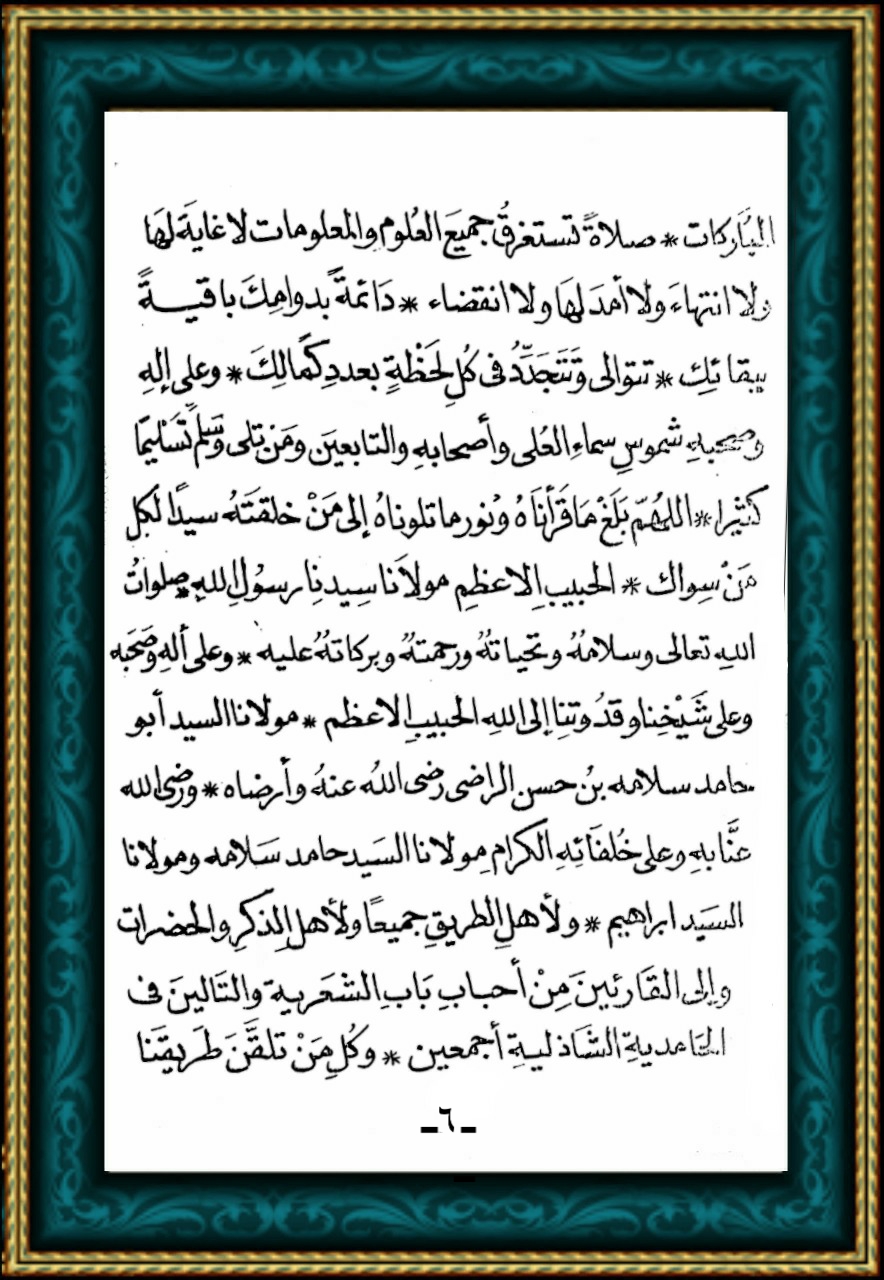 المُبَاركات * صلاةً تستغرقُ جميعَ العُلومِ والمعلومات لاغايةَ لهَا
ولا انتهاءَ ولا أمدَ لهَا ولا انقضاء * دَائمَةً بدوامِكَ باقيــةً
ببقائِك * تتوالى وَتَتَجَدَّدُ فى كُلِ لحَظْةٍ بعددِ كمَالِكَ * وعلى إلهِ
وصحبهِ شموسِ سماءِ العُلى وأصحابهِ والتابعينَ ومَن تلى وَسَلِّم تَسْليمًا
كثيرا * اللهُمّ بَلِغْ مَا قَرَأنَاهُ ونُور ما تلوناهُ إلى مَنْ خلقتَهُ سيدًا لكل
مَنْ سِواك * الحبيبِ الاعظمِ مولاَنا سِيدنِا رسوُلِ اللهِ صلواتُ
اللهِ تعالى وسلامُهُ وتحياتهُ ورحمتهُ وبركاتهُ عليه * وعلى ألهِ وصَحَبه
وعلى شَيْخِنا وقدُوتنِا إلى اللهِ الحبيبِ الاعظم * مولانا السيد أبو
حامد سلامه بنُ حسن الراضى رضى اللهُ عنهُ وأرضاه * ورضى الله
عنَّا بهِ وعلى خُلفَائهِ الكرامِ مولانا السَيد حامد سَلامه ومولانا
السَيد ابراهيم * ولأهلِ الطريقِ جميعًا ولأهلِ الِذكرِ والحضرات
وإلى القَارئينَ مِنْ أحبابِ بَابِ الشعَريةِ والتَالينَ فى
الحَامديةِ الشَاذليةِ أجمعين * وكُلِ مَنْ تلقَّنَ طَريقَنا
ـ٦ـ